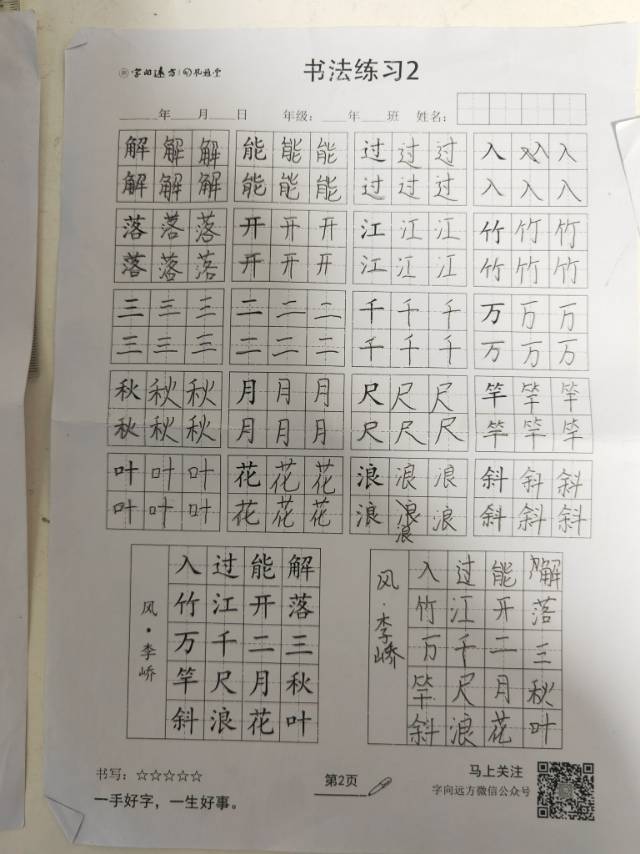 字向远方
书法练习2
年 月 日 年级: 年 班 姓名:
解 解 解 能 能 能 过 过 过 入 入 入
解 解 解 能 能 能 过 过 过 入 入 入
落 落 落 开 开 开 江 江 江 竹 竹 竹
落 落 落 开 开 开 江 江 江 竹 竹 竹
三 三 三 二 二 二 千 千 千 万 万 万
三 三 三 二 二 二 千 千 千 万 万 万
秋 秋 秋 月 月 月 尺 尺 尺 竿 竿 竿
秋 秋 秋 月 月 月 尺 尺 尺 竿 竿 竿
叶 叶 叶 花 花 花 浪 浪 浪 斜 斜 斜
叶 叶 叶 花 花 花 浪 浪 浪 斜 斜 斜
浪
风·李峤
解落三秋叶
能开二月花
过江千尺浪
入竹万竿斜
风·李峤
解落三秋叶
能开二月花
过江千尺浪
入竹万竿斜
书写:☆☆☆☆☆
一手好字，一生好事。
第2页
马上关注
字向远方微信公众号